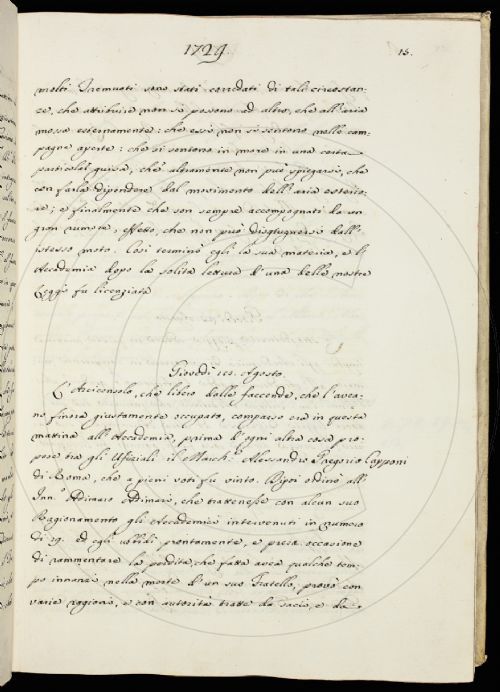 1729.
15.
molti Tremuoti sono stati corredati di tali circostan-
ze, che attribuire non se possono ad altro, che all'aria
mossa esternamente: che essi non si sentono nelle cam-
pagne aperte: che si sentono in mare in una certa
particolar guisa, che altramente non può spiegarsi, che
con farla dipendere dal movimento dell'aria esterio-
re; e finalmente che son sempre accompagnati da un
gran rumore, effetto, che non può disgiugnersi dall'
istesso moto. Così terminò egli la sua materia, e l'
Accademia dopo la solita lettura d'una delle nostre
Leggi fu licenziata
Giovedì Agosto.
L'Arciconsolo, che libero dalle faccende, che l'avea-
no finora giustamente occupato, comparso era in questa
mattina all'Accademia, prima d'ogni altra cosa pro-
pose tra gli Ufiziali il March.e Alessandro Gregorio Capponi
di Roma, che a pieni voti fu vinto. Dipoi ordinò all'
Inn.o Adimaro Adimari, che trattenesse con alcun suo
Ragionamento gli Accademici intervenuti in numero
di 19. Ed egli ubbidì prontamente, e presa occasione
di rammentare la perdita, che fatta avea qualche tem-
po innanzi nella morte d'un suo Fratello, provò con
varie ragioni, e con autorità tratte da sacri, e da